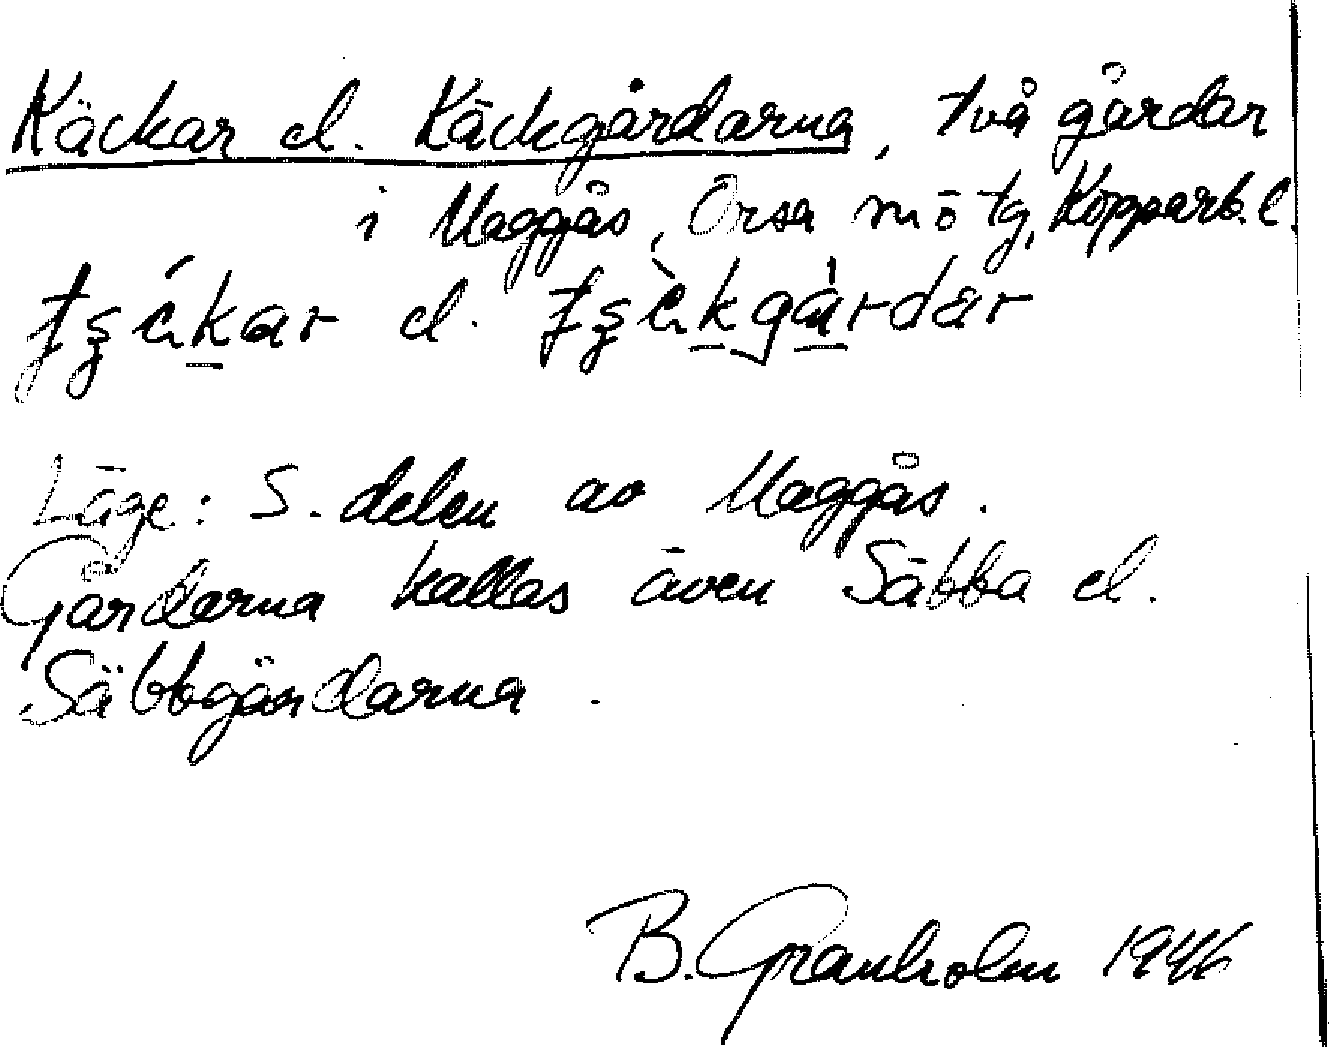 Käckar el. Käckgårdarna, två gårdar
i Maggås, Orsa sn o tg, Kopparb. l.
el.
Läge: S. delen av Maggås.
Gårdarna kallas även Säbba el.
Säbbgårdarna.
B. Granholm 1946